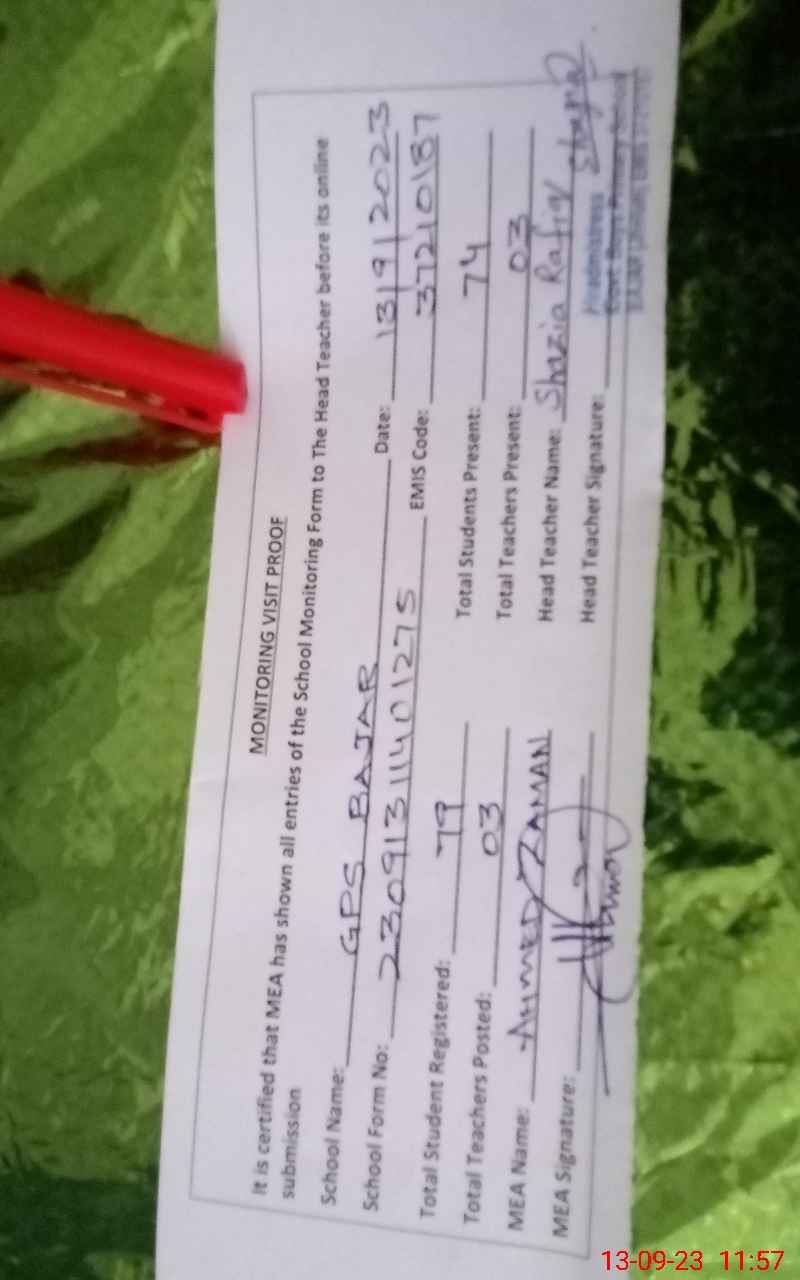 MONITORING VISIT PROOF
It is certified that MEA has shown all entries of the School Monitoring Form to The Head Teacher before its online
submission
School Name: GPS BAJAR Date: 13/9/2023
School Form No: 23091311401275 EMIS Code: 37210187
Total Student Registered: 79 Total Students Present: 74
Total Teachers Posted: 03 Total Teachers Present: 03
MEA Name: AHMED ZAMAN Head Teacher Name: Shazia Rafiq
MEA Signature: Head Teacher Signature: Shazia
Headmistress
Govt. Boys Primary School
13-09-23 11:57